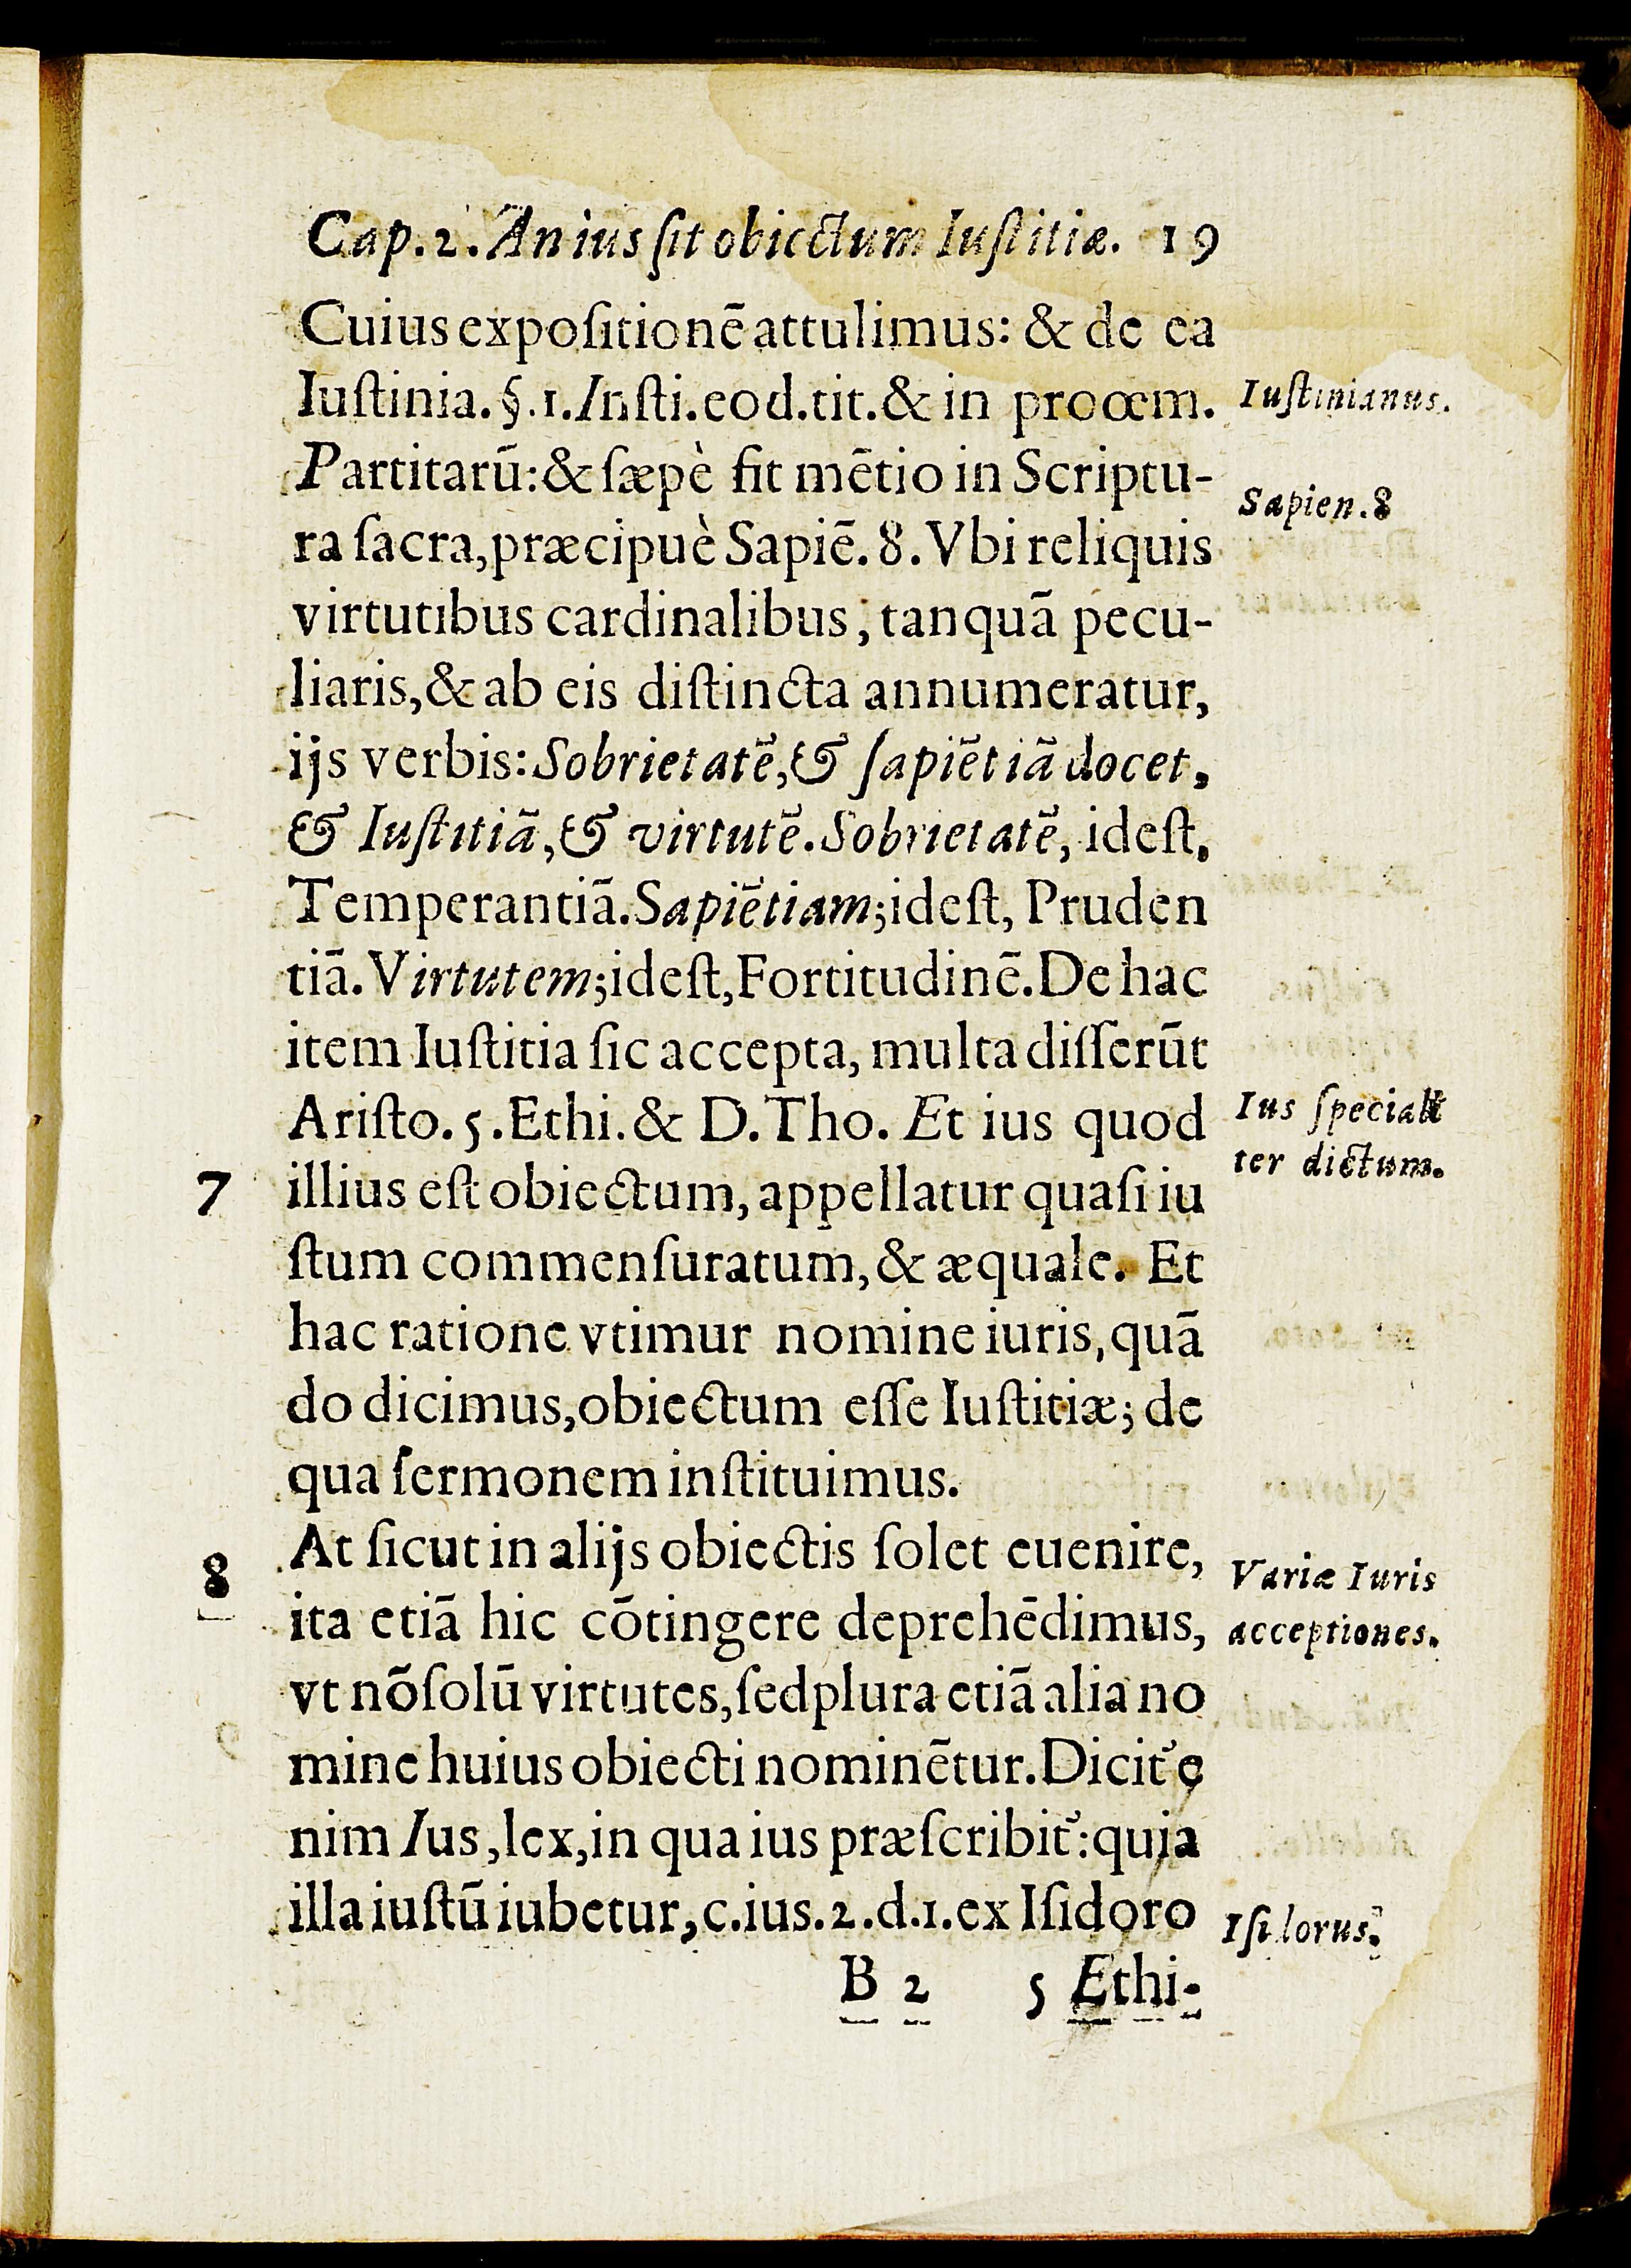 Cap. 2. An ius ſit obiectum Iuſtitiæ. 19
Cuius expoſitionẽ attulimus: & de ea
Iuſtinia. §. 1. Inſti. eod. tit. & in proœm.
Iuſtinianus.
Partitarũ: & ſæpè fit mẽtio in Scriptu-
ra ſacra, præcipuè Sapiẽ. 8. Vbi reliquis
Sapien. 8
virtutibus cardinalibus, tanquã pecu-
liaris, & ab eis diſtincta annumeratur,
ijs verbis: Sobrietatẽ, & ſapiẽtiã docet,
& Iuſtitiã, & virtutẽ. Sobrietatẽ, ideſt,
Temperantiã. Sapiẽtiam; ideſt, Pruden
tiã. Virtutem; ideſt, Fortitudinẽ. De hac
item Iuſtitia ſic accepta, multa diſſerũt
Ariſto. 5. Ethi. & D. Tho. Et ius quod
Ius ſpeciali
ter dictum.
7 illius eſt obiectum, appellatur quaſi iu
ſtum commenſuratum, & æquale. Et
hac ratione vtimur nomine iuris, quã
do dicimus, obiectum eſſe Iuſtitiæ; de
qua ſermonem inſtituimus.
8 At ſicut in alijs obiectis ſolet euenire,
Variæ Iuris
ita etiã hic cõtingere deprehẽdimus,
acceptiones.
vt nõ ſolũ virtutes, ſed plura etiã alia no
mine huius obiecti nominẽtur. Dicit᷑ e
nim Ius, lex, in qua ius præſcribit᷑: quia
illa iuſtũ iubetur, c. ius. 2. d. 1. ex Iſidoro
Iſidorus.
B 2 5 Ethi-